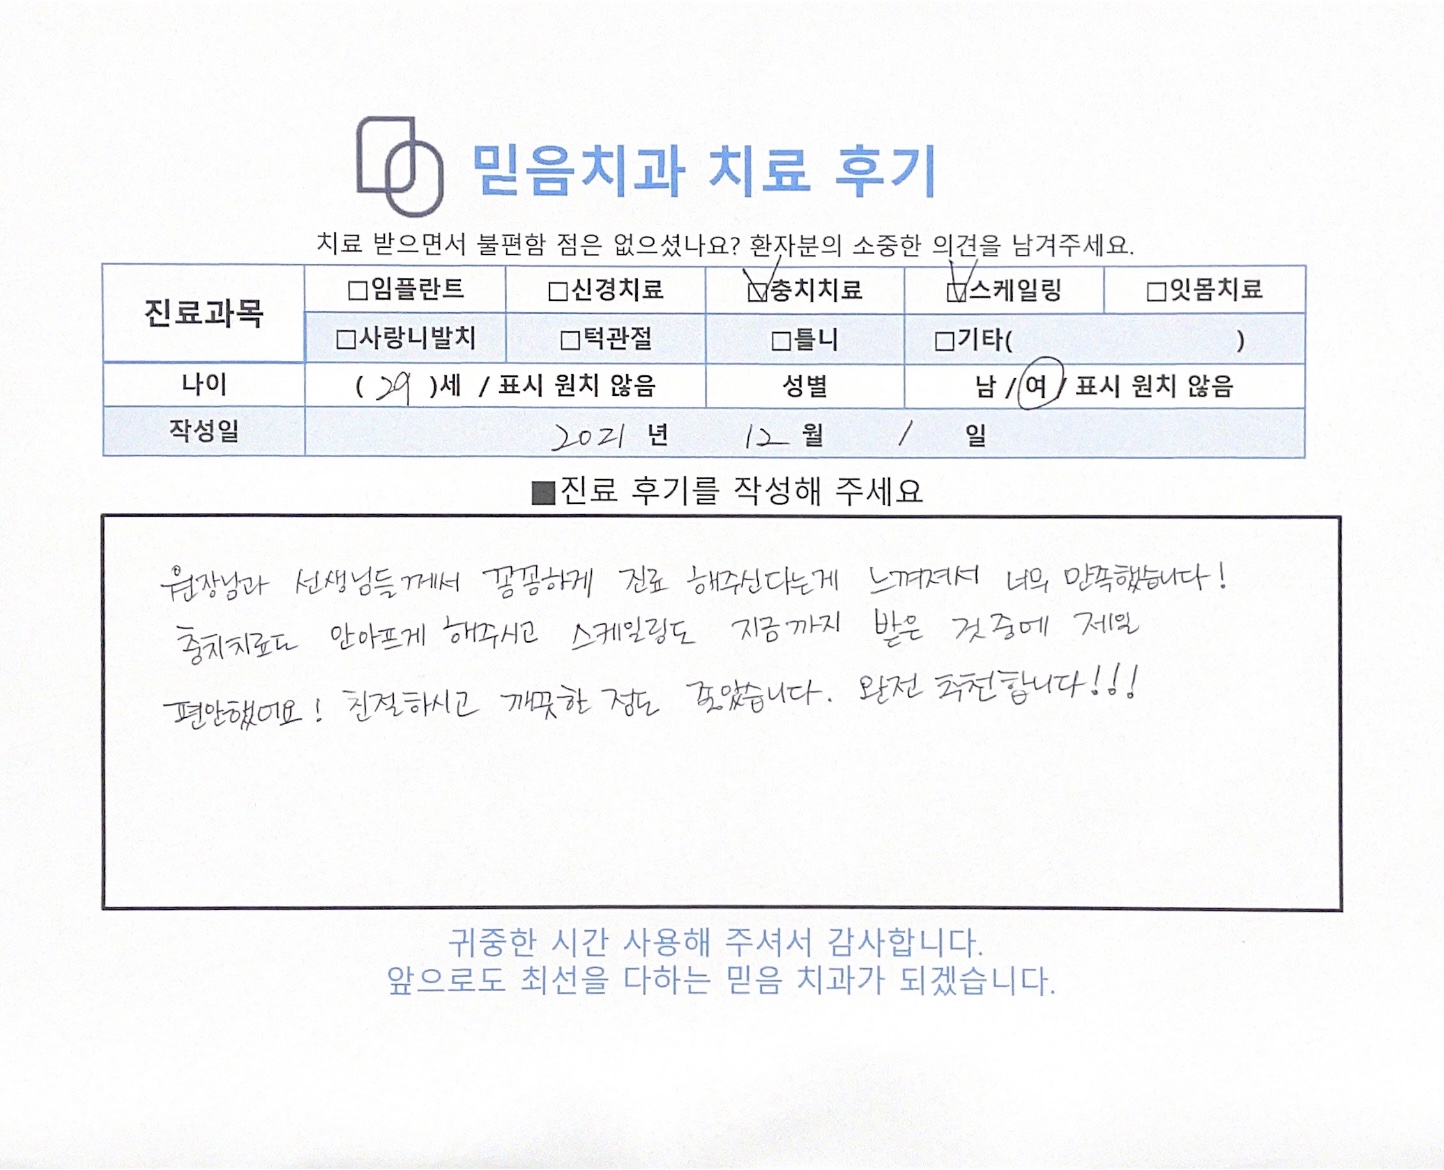 믿음치과 치료 후기
치료 받으면서 불편함 점은 없으셨나요? 환자분의 소중한 의견을 남겨주세요.
진료과목 □임플란트 □신경치료 ☑충치치료 ☑스케일링 □잇몸치료
□사랑니발치 □턱관절 □틀니 □기타( )
나이 ( 29 )세 / 표시 원치 않음 성별 남 / 여 / 표시 원치 않음
작성일 2021 년 12 월 / 일
■진료 후기를 작성해 주세요
원장님과 선생님들께서 꼼꼼하게 진료 해주신다는게 느껴져서 너무 만족했습니다!
충치치료도 안아프게 해주시고 스케일링도 지금까지 받은 것 중에 제일
편안했어요! 친절하시고 깨끗한 점도 좋았습니다. 완전 추천합니다!!!
귀중한 시간 사용해 주셔서 감사합니다.
앞으로도 최선을 다하는 믿음 치과가 되겠습니다.